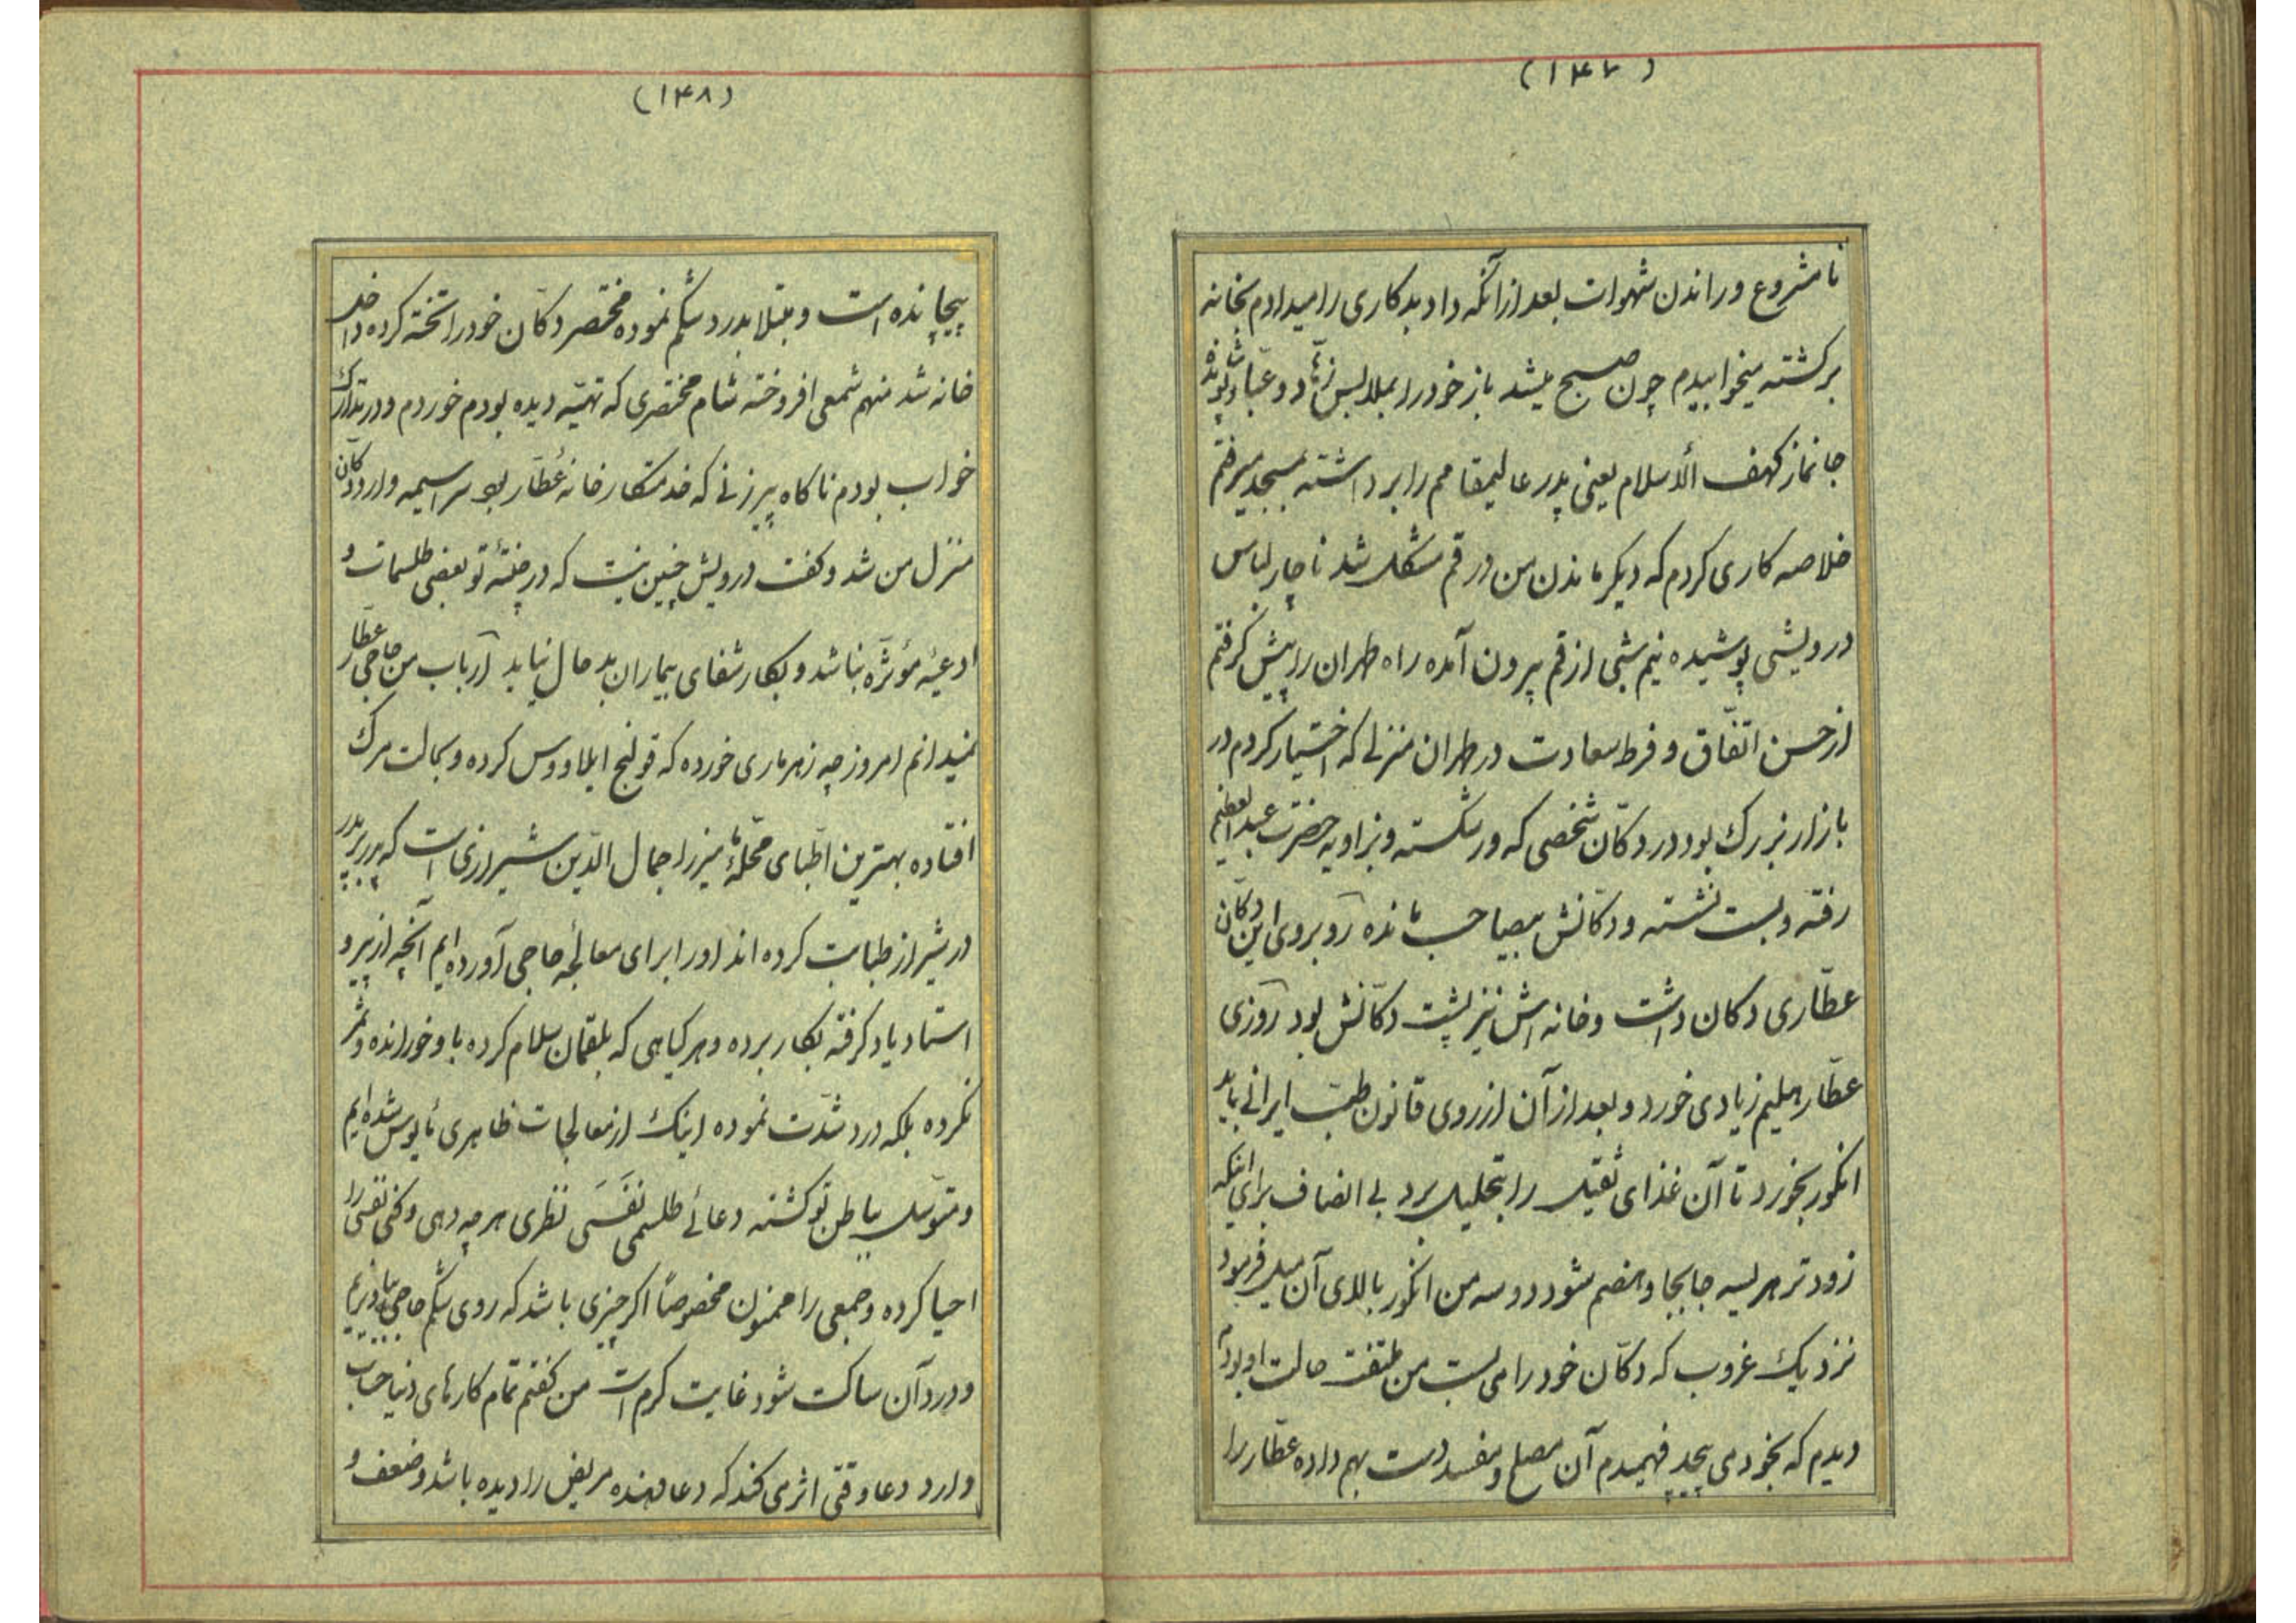 (۱۴۷)
نامشروع و راندن شهوات بعد از آنکه داد بدکاری را میدادم بخانه
برگشته میخوابیدم چون صبح میشد باز خود را بملابس زهاد و عباد
جانماز کهف الأسلام یعنی پدر عالیمقامم را برداشته بمسجد میرفتم
خلاصه کاری کردم که دیگر ماندن من در قم مشکل شد ناچار لباس
درویشی پوشیده نیم شبی از قم بیرون آمده راه طهران را پیش گرفتم
از حسن اتفّاق و فرط سعادت در طهران منزلی که اختیار کردم در
بازار بزرگ بود در دکّان شخصی که ورشکسته و بزاویه حضرت عبدالعظیم
رفته و بست نشسته و دکانش بیصاحب مانده روبروی این دکّان
عطّاری دکان داشت و خانه اش نیز پشت دکّانش بود روزی
عطّار هلیم زیادی خورد و بعد از آن از روی قانون طبّ ایرانی باید
انگور بخورد تا آن غذای ثقیل را بتحلیل برد بی انصاف برای اینکه
زودتر هریسه جابجا و هضم شود دو سه من انگور بالای آن میل فرمود
نزدیک غروب که دکّان خود را می بست من ملتفت حالت او بودم
دیدم که بخود می پیچد فهمیدم آن مصلح و مفسد دست بهم داده عطّار را
(۱۴۸)
پیچانده است و مبتلا بدرد شکم نموده مختصر دکّان خود را تخته کرده داخل
خانه شد منهم شمعی افروخته شام مختصری که تهیّه دیده بودم خوردم و در تدارک
خواب بودم ناگاه پیرزنی که خدمتکار خانهٔ عطّار بود سراسیمه وارد دکان
منزل من شد و گفت درویش چنین نیست که در چنتهٔ تو بعضی طلسمات و
ادعیهٔ مؤثّره نباشد و بکار شفای بیماران بد حال نیاید ارباب من حاجی عطّار
نمیدانم امروز چه زهرماری خورده که قولنج ایلاووس کرده و بحالت مرگ
افتاده بهترین اطبّای محلّهٔ ما میرزا جمال الدّین شیرازی است که پدر بر پدر
در شیراز طبابت کرده اند او را برای معالجهٔ حاجی آورده ایم آنچه از پیر و
استاد یاد گرفته بکار برده و هر گیاهی که بلقمان سلام کرده باو خورانده و ثمر
نکرده بلکه درد شدّت نموده اینک از معالجات ظاهری مأیوس شده ایم
و متوسّل بباطن تو گشته دعائی طلسمی نَفَسی نظری هر چه دهی و کنی نفسی را
احیا کرده و جمعی را ممنون مخصوصاً اگر چیزی باشد که روی شکم حاجی بیاویزیم
و درد آن ساکت شود غایت کرم است من گفتم تمام کارهای دنیا حساب
دارد دعا وقتی اثر می کند که دعا دهنده مریض را دیده باشد و ضعف و